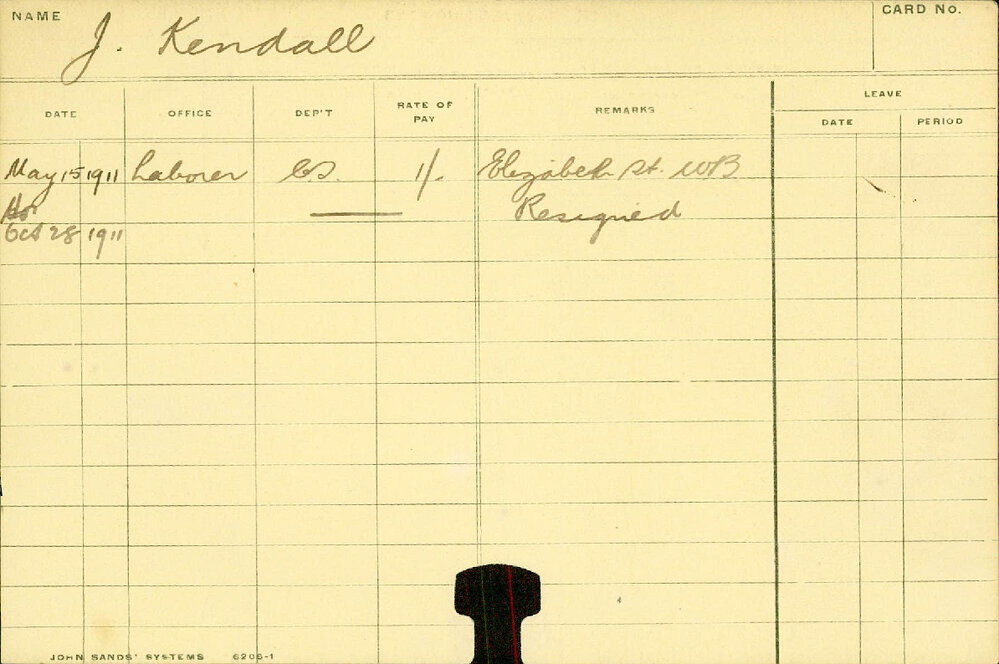 NAME
J. Kendall
CARD No.
DATE OFFICE DEP'T RATE OF PAY REMARKS LEAVE
DATE PERIOD
May 15 1911 Laborer C.S. 1/- Elizabeth St. WB
Resigned
Oct 28 1911
JOHN SANDS' SYSTEMS 6206-1